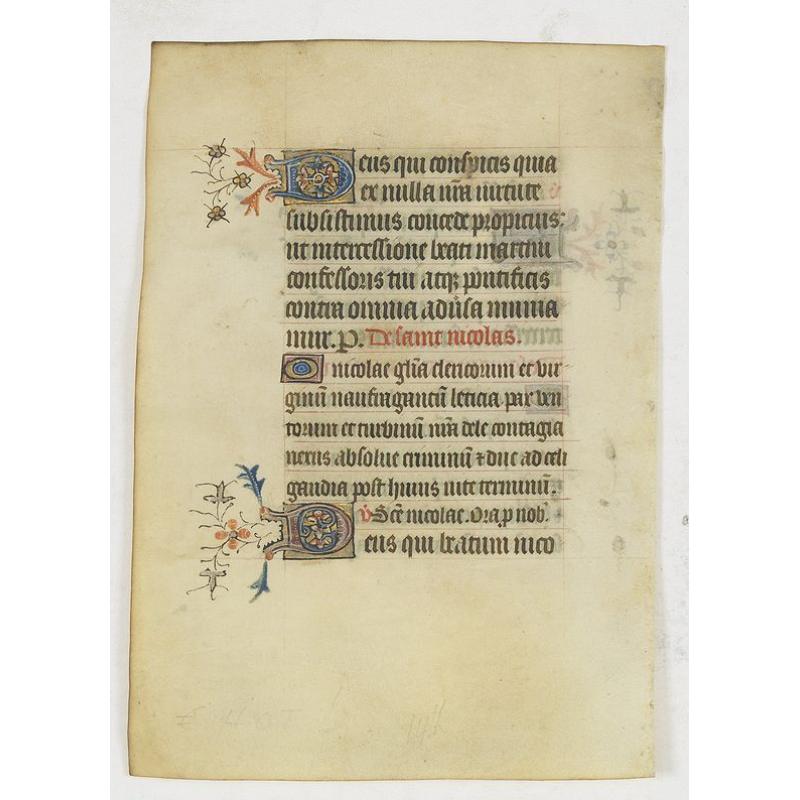 Deus qui conspicis quia
ex nulla nr̄a uirtute
subsistimus concede propicius:
ut intercessione beati martini
confessoris tui atqꝫ pontificis
contra omnia adūsa munia
mur. P. De saint nicolas.
O nicolae gl̄ia clericorum et vir
ginū naufragantū leticia pax ven
torum et turbinū nr̄a dele contagia
nexus absolue criminū ⁊ duc ad celi
gaudia post huius uite terminū.
v̓ Scē nicolae. Ora ꝓ nob̄.
Deus qui beatum nico